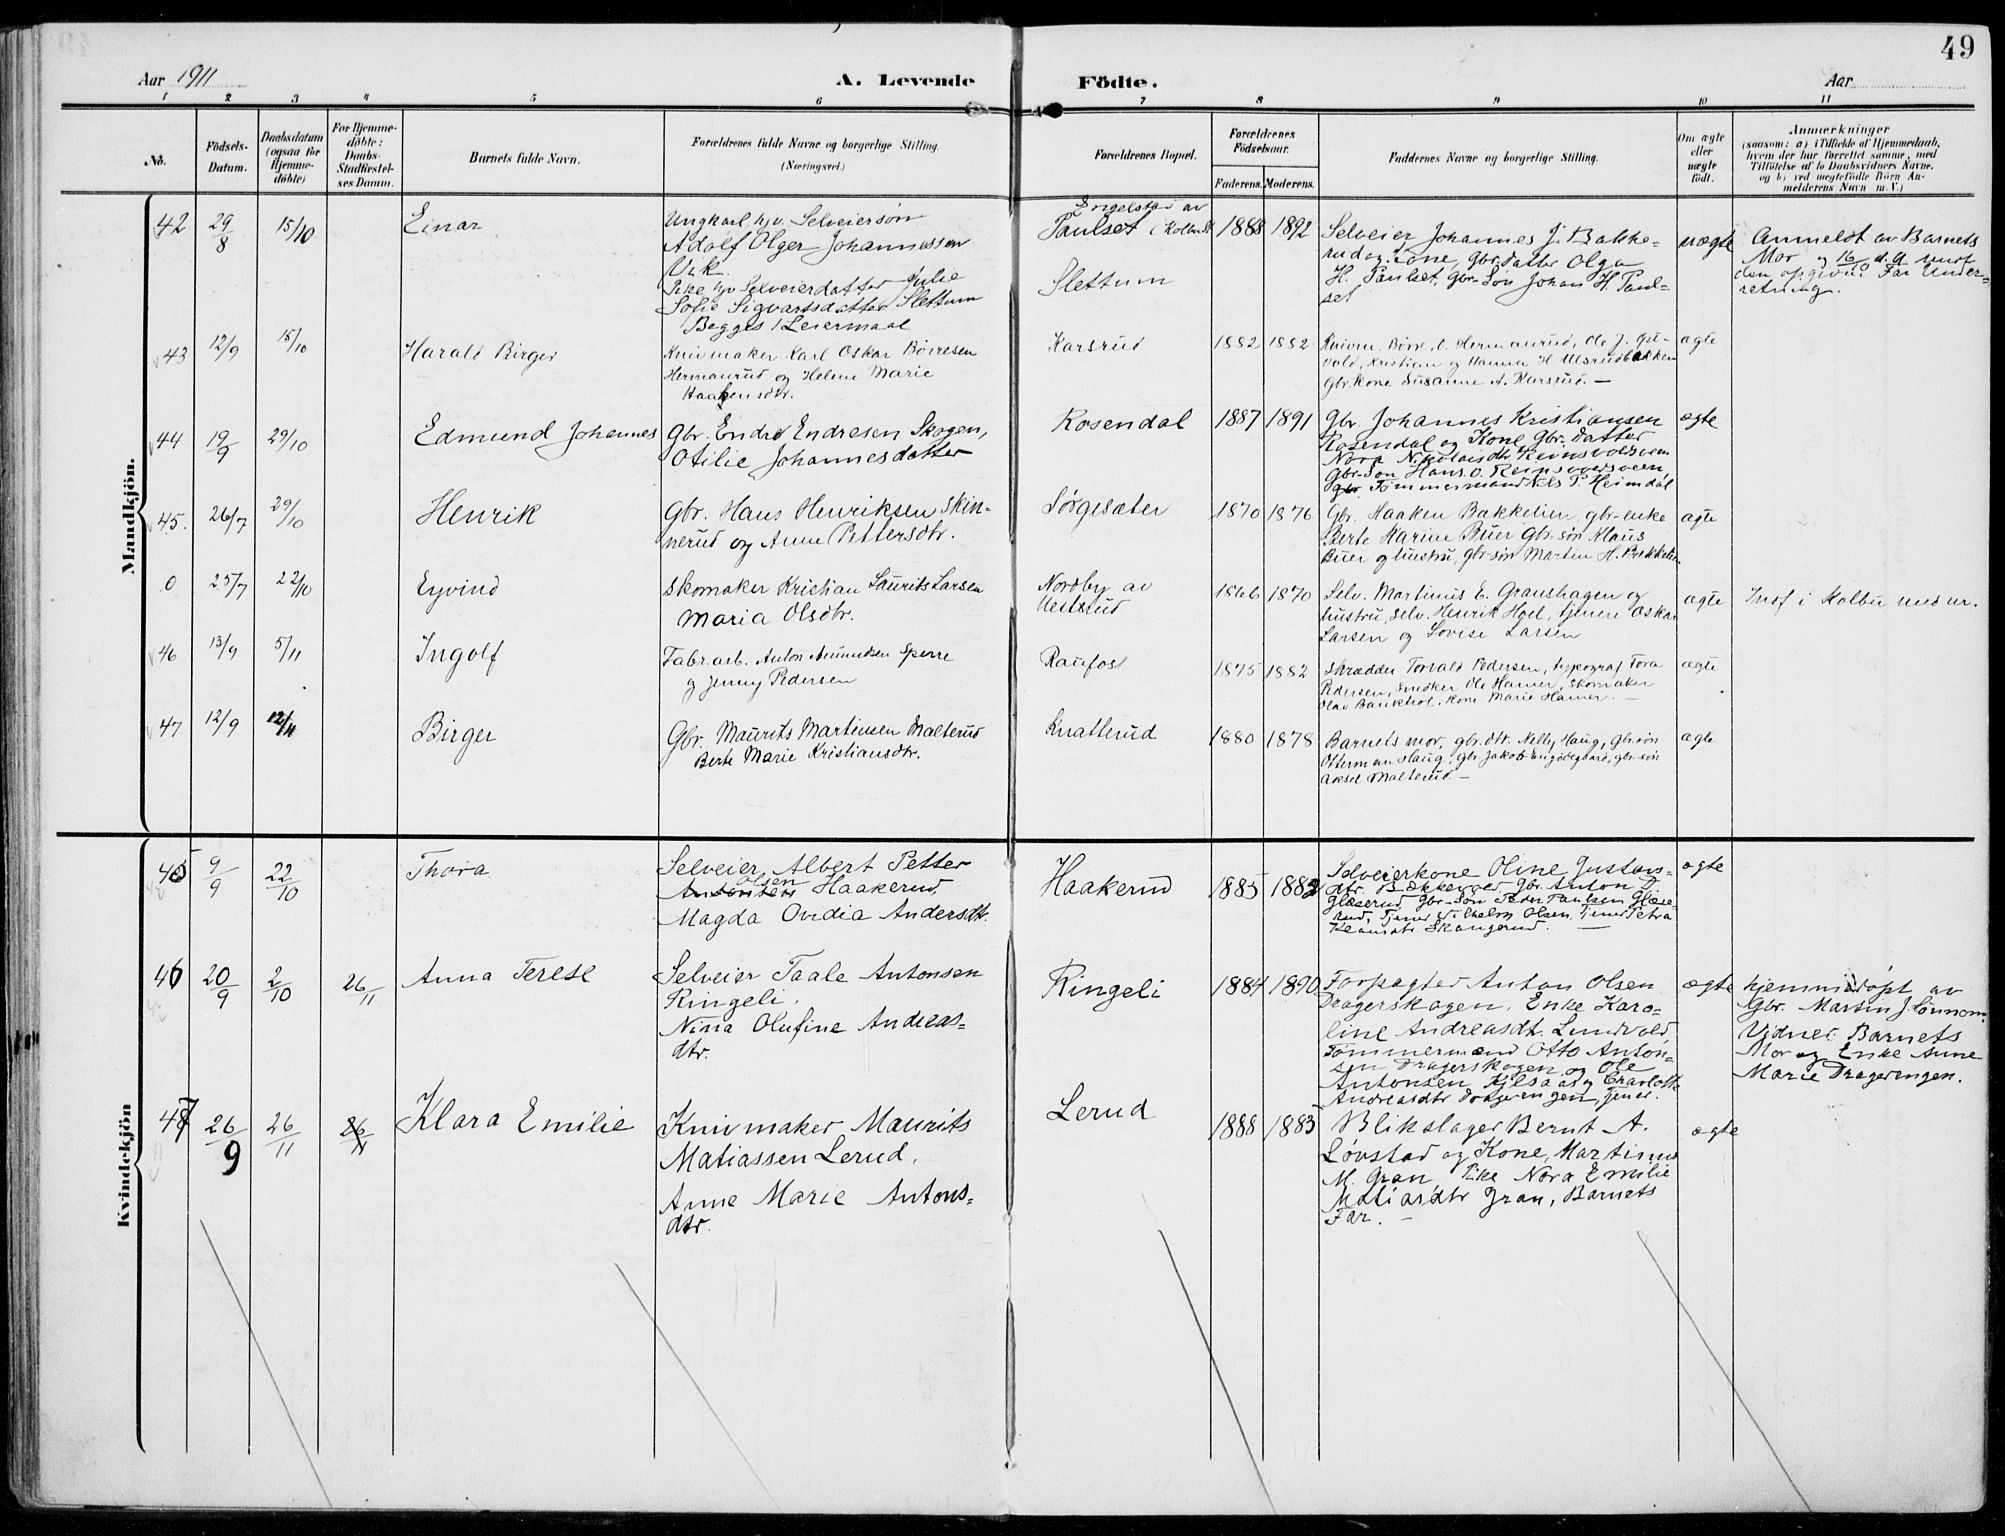 49
Aar 1911
A. Levende Födte.
Aar
1 2 3 4 5 6 7 8 9 10 11
No.
Födsels-
Datum.
Daabsdatum
(ogsaa for
Hjemme-
döbte)
For Hjemme-
döbte:
Daabs-
Stadfæstel-
ses Datum.
Barnets fulde Navn.
Forældrenes fulde Navne og borgerlige Stilling.
(Næringsvei.)
Forældrenes Bopæl.
Forældrenes
Födselsaar.
Faderens. Moderens.
Faddernes Navne og borgerlige Stilling.
Om ægte
eller
uægte
födt.
Anmærkninger
(saasom: a) i Tilfælde af Hjemmedaab,
hvem der har forrettet samme, med
Tilföielse af to Daabsvidners Navne,
og b) ved uægtefödte Börn An-
melderens Navn m. V.)
Mandkjön.
42 29/8 15/10 Einar
Ungkarl hjv. Selveiersøn
Adolf Olger Johannessen
Vik.
Pike hjv Selveierdatter Julie
Sofie Sigvartsdatter Slettum
Begges 1 Leiermaal
Engelstad av
Paulset i Kolbu
Slettum
1888 1892
Selveier Johannes J. Bakke-
rud og Kone, gbr. datter Olga
H. Paulset, gbr-Søn Johan H. Paul-
set
uægte
Anmeldt av Barnets
Mor og 16/10 d. a.
den opgivne Far Under-
retning.
43 12/9 15/10 Harald Birger
Knivmaker Karl Oskar Børresen
Hermanrud og Helene Marie
Haakensdtr.
Karsrud
1882 1882
Hermanrud, Ole J.
vold, Kristian og Hanna H Ulsrudbakken
Gbr.kone Susanne A. Karsrud. —
ægte
44 19/9 29/10 Edmund Johannes
Gbr. Endre Endresen Skogen,
Otilie Johannesdatter
Rosendal
1887 1891
Gbr. Johannes Kristiansen
Rosendal og Kone Gbr. datter
Nora Nikolaisdtr Reinsvoldsveen
Gbr-Søn Hans O. Reinsvoldsveen,
Tømmermand Nils P. Heimdal
ægte
45. 26/7 29/10 Henrik
Gbr. Hans Henriksen Skin-
nerud og Anne Pettersdtr.
Sørgesæter
1870 1876
Gbr. Haaken Bakkelien, gbr-enke
Berte Karine Buer Gbr-søn Klaus
Buer og hustru, gbr-søn Martin H. Bakkelien
ægte
0 25/7 22/10 Eyvind
Skomaker Kristian Laurits Larsen
Maria Olsdtr.
Nordby av
Vestrud
1866 1870
Selv. Martinus E. Graushagen og
hustru, selv. Henrik Hoel, tjener Oskar
Larsen og Lovise Larsen
ægte
Indf i Kolbu med nr.
46 13/9 5/11 Ingolf
Fabr.arb. Anton Amundsen Sperre
og Jenny Pedersen
Raufos
1875 1882
Skrædder Torvald Pedersen, typograf Tora
Pedersen, Snedker Ole Hamer, Skomaker
Olav Bankhol, Kone Marie Hamer. —
ægte
47 12/9 12/11 Birger
Gbr. Maurits Martinsen Malterud
Berte Marie Kristiansdtr.
Knatterud
1880 1878
Barnets mor, gbr.dtr. Nelly Haug, gbr.søn
Otterm an Haug, gbr Jakob Engødegaard, gbr-søn
Aksel Malterud. —
ægte
Kvindekjön
45 9/9 22/10 Thora
Selveier Albert Petter
Olsen Haakerud,
Magda Ovidia Andersdtr.
Haakerud
1885 1882
Selveierkone Oline Gustavs-
dtr. Bækkevold, Gbr. Anton D.
Glæserud, Gbr-Søn Peder Paulsen Glæse-
rud, Tjener Vilhelm Olsen, Tjener Petra
Skaugerud. —
ægte
46 20/9 2/10 26/11 Anna Terese
Selveier Taale Antonsen
Ringeli.
Nina Olufine Andreas-
dtr.
Ringeli
1884 1890
Forpagter Anton Olsen
Dragerskogen, Enke Karo-
line Andreasdt. Lundvold,
Tømmermand Otto Anton-
sen Dragerskogen og Ole
Antonsen Kjelsaas og Charlotte
Andreasdtr Dragerengen, tjener.
ægte
hjemmedøpt av
Gbr. Martin J.
Vidner: Barnets
Mor og Enke Anne
Marie Dragerengen.
47 26/9 26/11 Klara Emilie
Knivmaker Maurits
Matiassen Lerud,
Anne Marie Antons-
dtr.
Lerud
1888 1885
Blikslager Bernt A.
Løvstad og Kone, Martinus
M. Gran, Pike Nora Emilie
Matiasdtr Gran, Barnets
Far. —
ægte